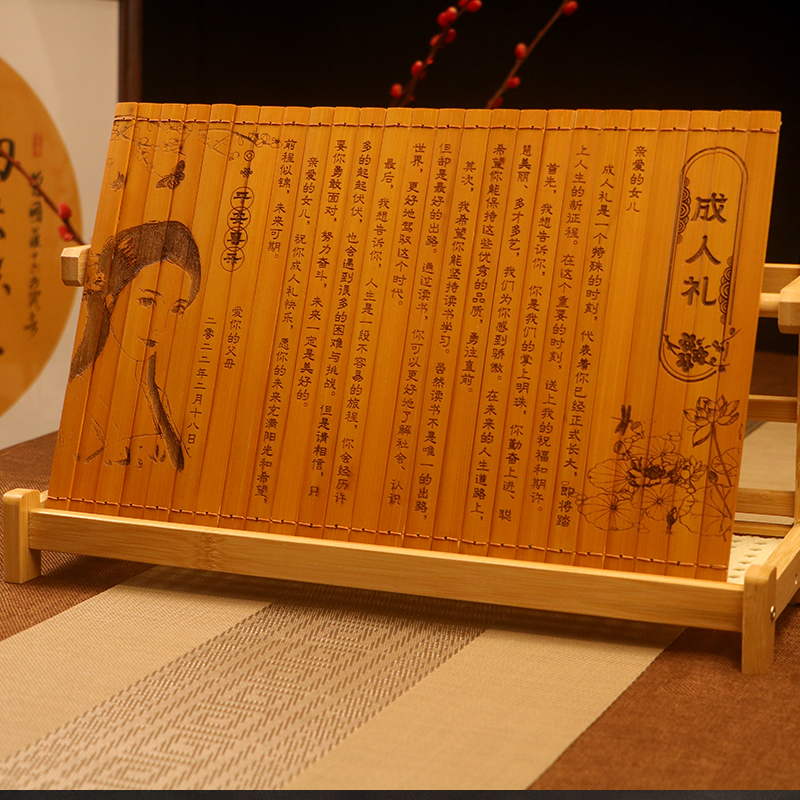 成人礼
亲爱的女儿
成人礼是一个特殊的时刻，代表着你已经正式长大，即将踏
上人生的新征程。在这个重要的时刻，送上我的祝福和期许。
首先，我想告诉你，你是我们的掌上明珠，你勤奋上进、聪
慧美丽、多才多艺，我们为你感到骄傲。在未来的人生道路上，
希望你能保持这些优秀的品质，勇往直前。
其次，我希望你能坚持读书学习。虽然读书不是唯一的出路，
但却是最好的出路。通过读书，你可以更好地了解社会、认识
世界，更好地驾驭这个时代。
最后，我想告诉你，人生是一段不容易的旅程，你会经历许
多的起起伏伏，也会遇到很多的困难与挑战。但是请相信，只
要你勇敢面对，努力奋斗，未来一定是美好的。
亲爱的女儿，祝你成人礼快乐，愿你的未来充满阳光和希望，
前程似锦，未来可期。
平安喜乐
爱你的父母
二零二二年二月十八日